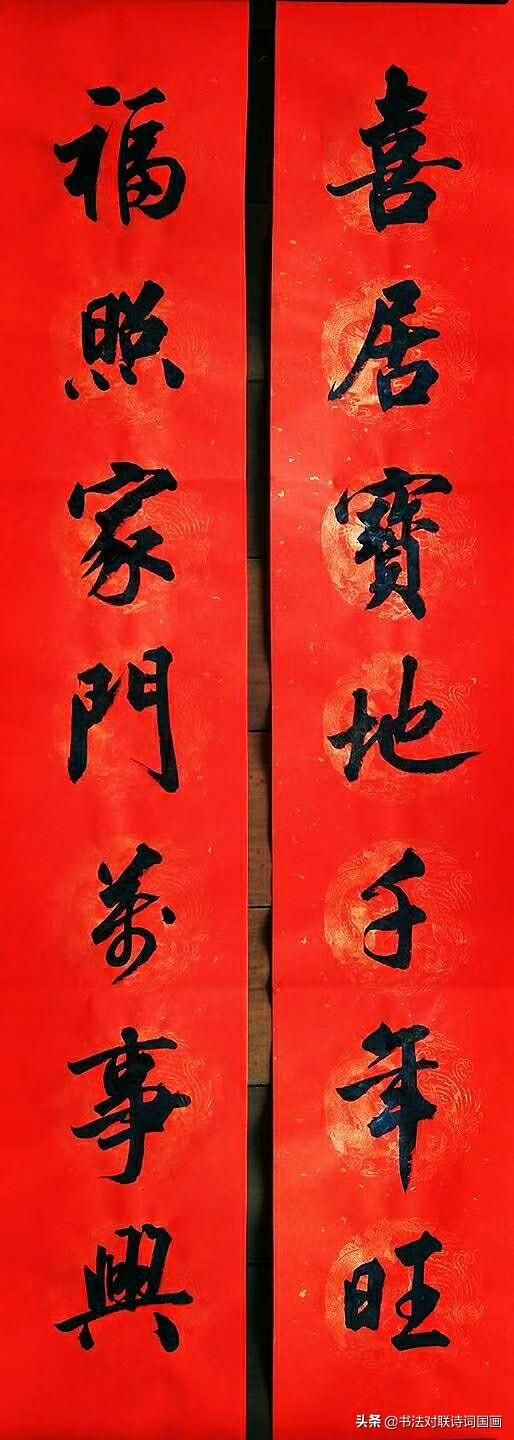 喜居寶地千年旺
福照家門萬事興
头条 @书法对联诗词国画